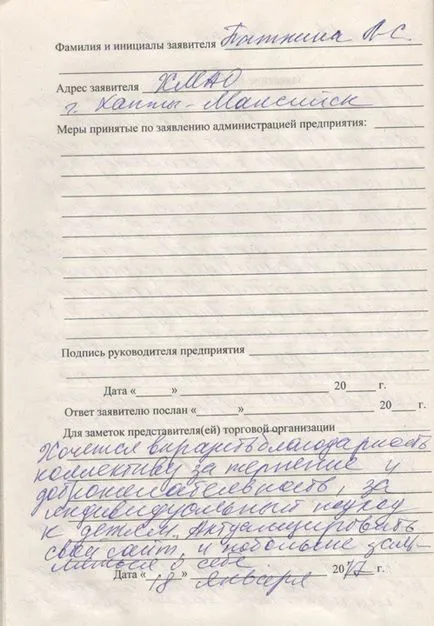 Фамилия и инициалы заявителя Пыткина Л-С
Адрес заявителя ХМАО
г. Ханты-Мансийск
Меры принятые по заявлению администрацией предприятия:
Подпись руководителя предприятия
Дата «____» 20___ г.
Ответ заявителю послан «____» 20___ г.
Для заметок представителя(ей) торговой организации
Хочется выразить благодарность
коллективу за терпение и
доброжелательность, за
индивидуальный подход
к детям. Актуализировать
свой сайт, и побольше
о себе
Дата « 18 » января 2017 г.